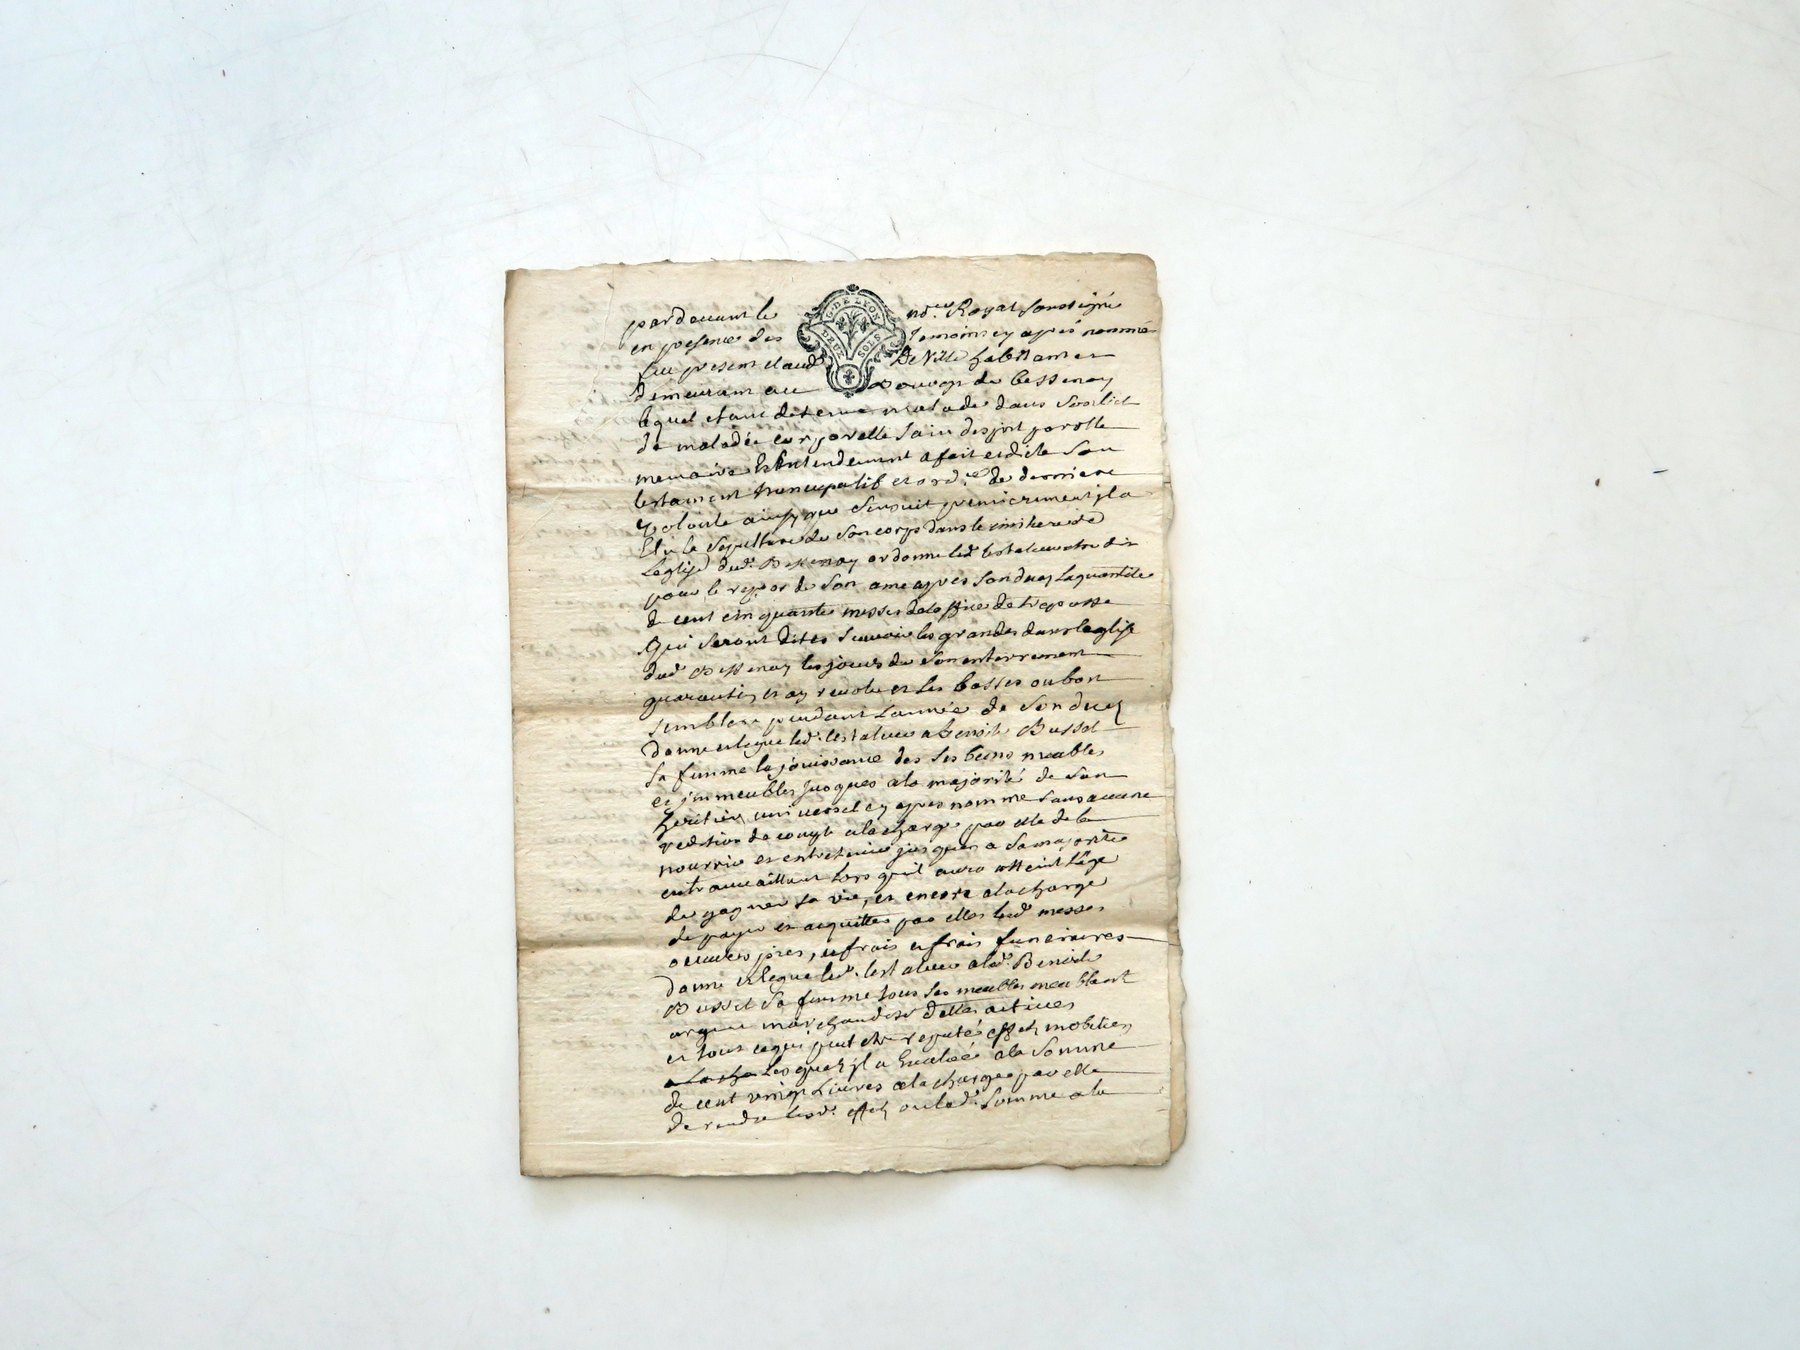 G. DE LYON
DEUX SOLS
pardevant le no.re Royal soussigné
en presence des temoins cy apres nommé
fut present claude De Ville habittant et
demeurant au Bourg de bessenay
lequel etant detenu malade dans son lict
de maladie corporelle sain desprit parolle
memoire Et Entendement a fait et dicte son
testament nuncupatif et ord.re de derniere
volonte ainsy que sensuit premierement il a
Elu la sepulture de son corps dans le cimitiere de
Leglise dud. Bessenay ordonne led. testateur etre dit
pour le repos de son ame apres son deces la quantite
de cent cinquante messes de loffice de trepasse
qui seront dites scavoir les grandes dans leglise
dud. Bessenay les jours de son enterrement
quarantin et an revolu et les basses ou bon
semblera pendant Lannée de son deces
donne et legue led. testateur a Benoite Bussot
sa femme la jouissance des ses biens meubles
et immeubles jusques a la majorité de son
heritier universel cy apres nommé sans aucune
reddition de compte a la charge par elle de le
nourrir et entretenir jusques a sa majorité
en travaillant lors quil aura atteint lage
de gagner sa vie, et encore a la charge
de payer et acquitter par elle lesd. messes
oeuvres pies, et frais funeraires
donne et legue led. testateur a lad. Benoite
Bussot sa femme tous ses meubles meublant
argent marchandise dettes actives
et tout ce qui peut etre reputé effets mobiliers
a la cha Lesquels il a Evalué a la somme
de cent vingt Livres a la charge par elle
de rendre lesd. effets ou lad. somme a la